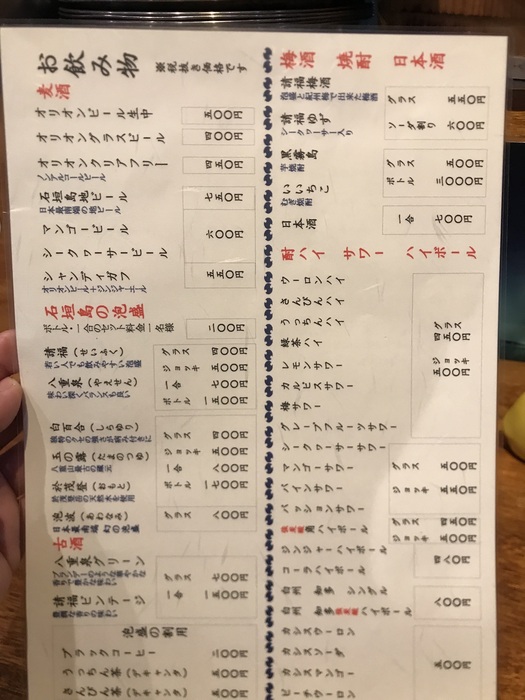 お飲み物 ※税抜き価格です
麦酒
オリオンビール生中 五〇〇円
オリオングラスビール 四〇〇円
オリオンクリアフリー 四五〇円
ノンアルコールビール
石垣島地ビール 七五〇円
日本最南端の地ビール
マンゴービール
六〇〇円
シークヮーサービール
シャンディガフ 五五〇円
オリオンビール+ジンジャーエール
石垣島の泡盛
ボトル・一合のセット料金一名様 二〇〇円
請福(せいふく)
若い人でも飲みやすい泡盛
八重泉(やえせん)
味わい深くバランスも良い
グラス 四〇〇円
ジョッキ 五〇〇円
一合 七〇〇円
ボトル 一五〇〇円
白百合(しらゆり)
独特のクセの強さが病み付きに
玉の露(たまのつゆ)
八重山最古の蔵元
於茂登(おもと)
於茂登岳の天然水を使用
グラス 四〇〇円
ジョッキ 五〇〇円
一合 八〇〇円
ボトル 一七〇〇円
泡波(あわなみ) グラス 八〇〇円
日本最南端 幻の泡盛
古酒
八重泉グリーン
ブランデーのような華やかな
香りで豊かな味わい
請福ビンテージ
豊潤な香りの味わい
グラス 七〇〇円
一合 一五〇〇円
泡盛の割用
ブラックコーヒー 二〇〇円
うっちん茶(デキャンタ) 五〇〇円
さんぴん茶(デキャンタ) 五〇〇円
梅酒 焼酎 日本酒
請福梅酒 グラス 五五〇円
泡盛と紀州梅で出来た梅酒
請福ゆず ソーダ割り 六〇〇円
シークヮーサー入り
黒霧島 グラス 五〇〇円
芋焼酎
いいちこ ボトル 三〇〇〇円
むぎ焼酎
日本酒 一合 七〇〇円
酎ハイ サワー ハイボール
ウーロンハイ
さんぴんハイ
うっちんハイ
緑茶ハイ
レモンサワー
カルピスサワー
梅サワー
グレープフルーツサワー
グラス 四五〇円
ジョッキ 五〇〇円
シークヮーサーサワー
マンゴーサワー
パインサワー
パッションサワー
グラス 五〇〇円
ジョッキ 五五〇円
角ハイボール グラス 四五〇円
ジョッキ 五〇〇円
ジンジャーハイボール
コーラハイボール
四八〇円
白州 知多 シングル
白州 知多 ハイボール
八〇〇円
カシスウーロン
カシスソーダ
カシスマンゴー
ピーチウーロン
五〇〇円